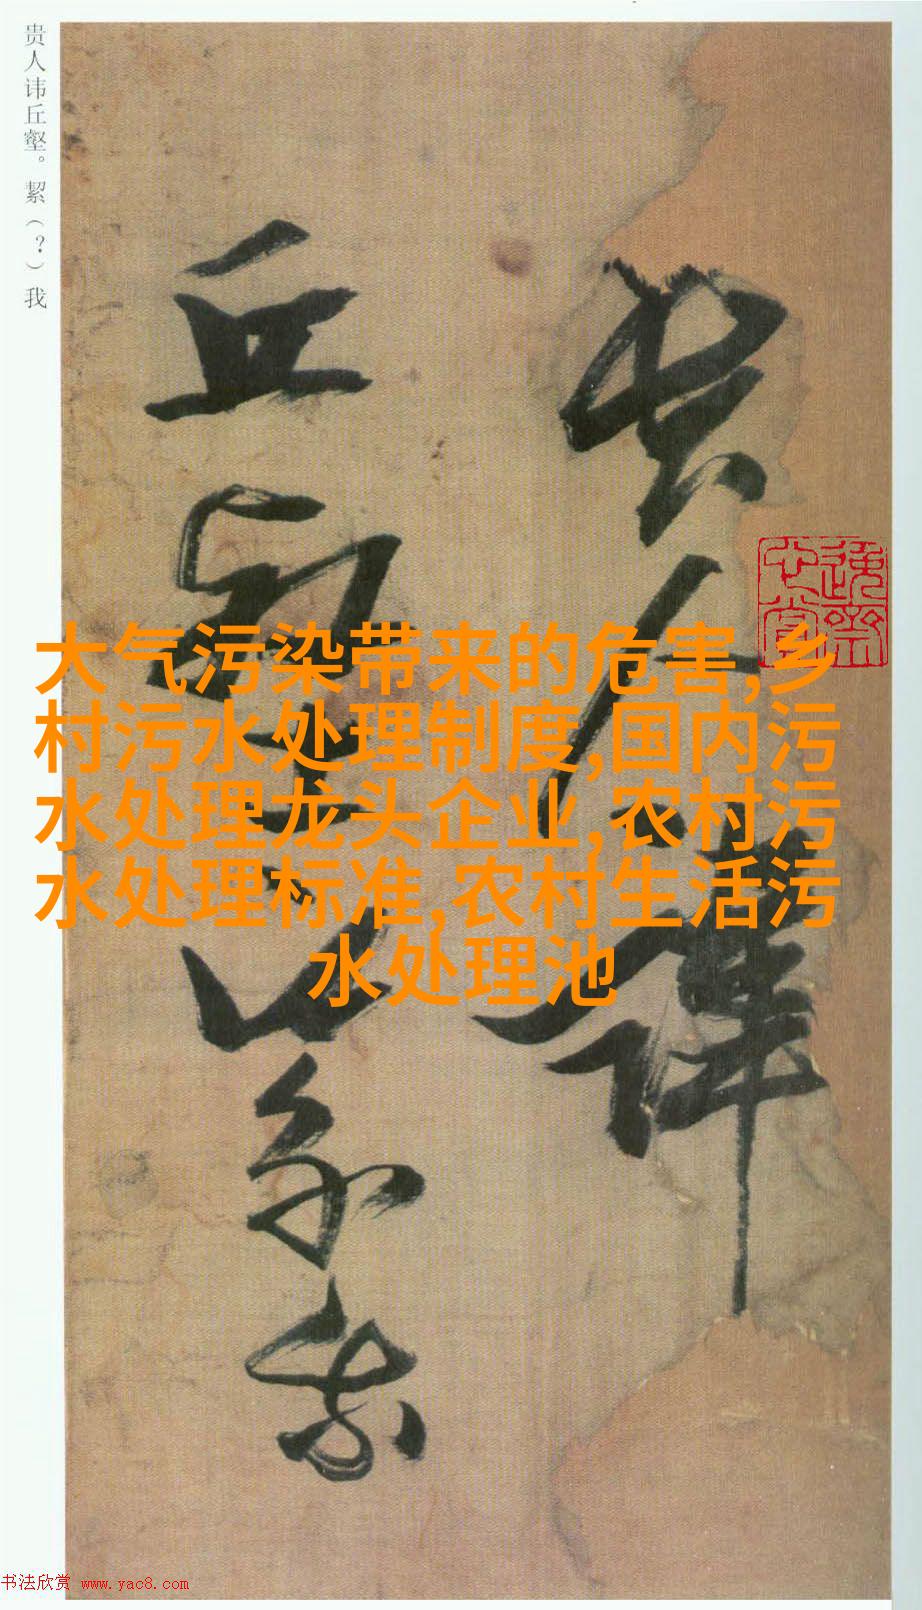 贵人讳丘壑。絜（？）我
贵人讳
丘壑
我
大气污染带来的危害,乡
村污水处理制度,国内污
水处理龙头企业,农村污
水处理标准,农村生活污
水处理池
书法欣赏 www.yac8.com